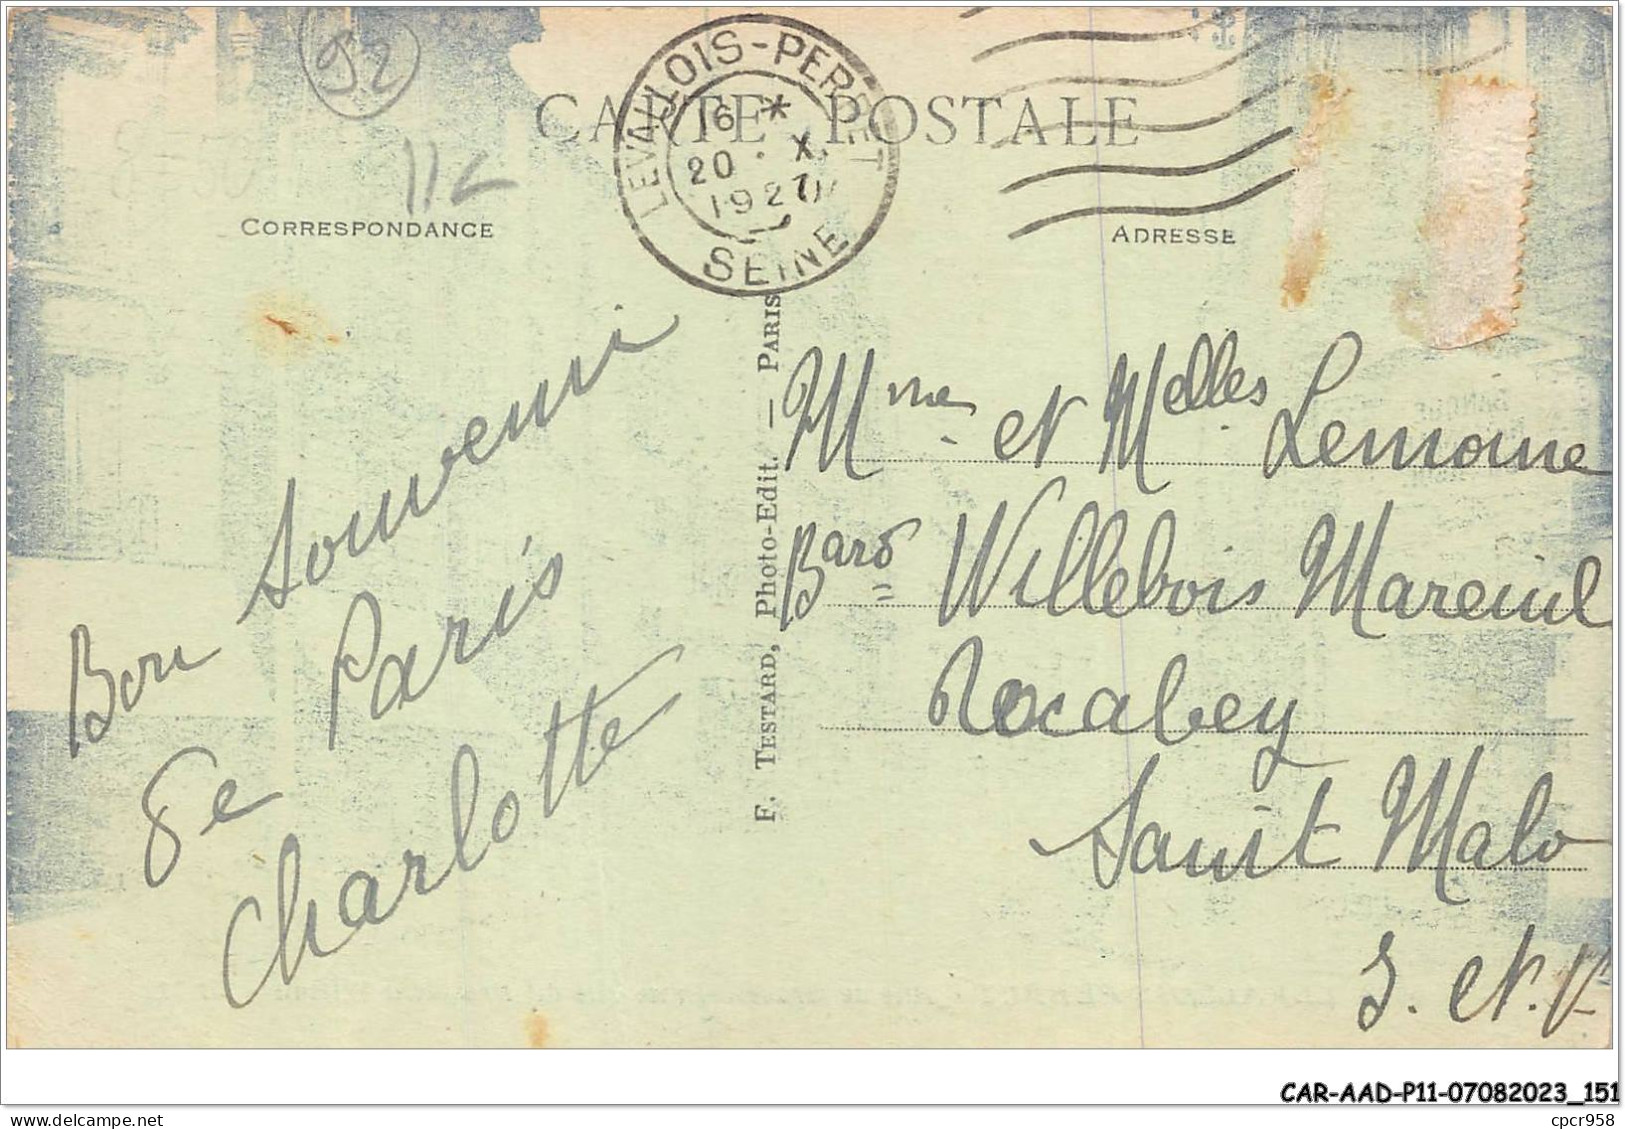 92
CARTE POSTALE
11€
CORRESPONDANCE
ADRESSE
LEVALLOIS-PERRET
16 *
20 . X.
1927
SEINE
F. TESTARD, Photo-Edit. — PARIS
Bon Souvenir
de Paris
Charlotte
Mme et Melles Lemoine
Bard Willebois Mareuil
Rocabey
Saint Malo
I. et V.
CAR-AAD-P11-07082023_151
cpcr958